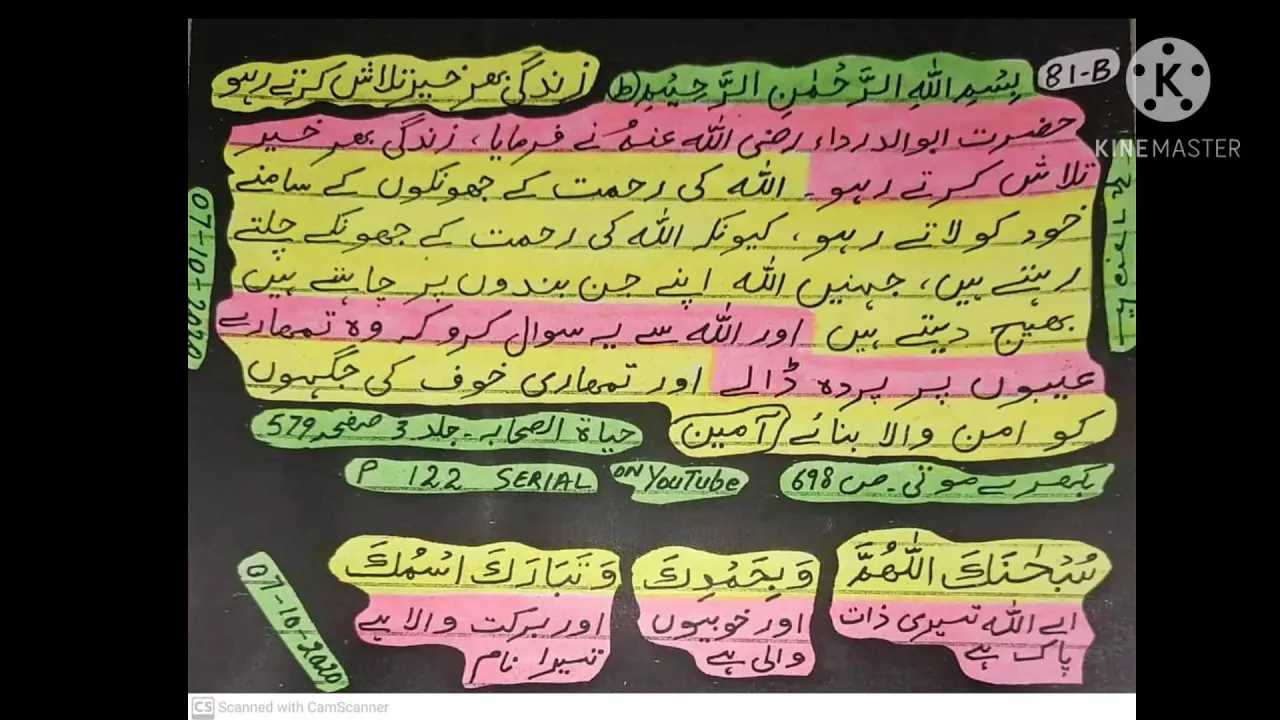 81-B
بِسْمِ اللّٰهِ الرَّحْمٰنِ الرَّحِيْمِ (ط) زندگی بھر خیر تلاش کرتے رہو
حضرت ابوالدرداء رضی اللّٰہ عنہُ نے فرمایا، زندگی بھر خیر
تلاش کرتے رہو۔ اللّٰہ کی رحمت کے جھونکوں کے سامنے
خود کو لاتے رہو، کیونکہ اللّٰہ کی رحمت کے جھونکے چلتے
رہتے ہیں، جنہیں اللّٰہ اپنے جن بندوں پر چاہتے ہیں
بھیج دیتے ہیں اور اللّٰہ سے یہ سوال کرو کہ وہ تمھارے
عیبوں پر پردہ ڈالے اور تمھاری خوف کی جگہوں
کو امن والا بنائے (آمین)
حیاۃ الصحابہ۔ جلد 3 صفحہ 579
بکھرے موتی۔ ص 698
ON YouTube
P 122 SERIAL
07-10-2020
سُبْحٰنَكَ اللّٰهُمَّ وَبِحَمْدِكَ وَتَبَارَكَ اسْمُكَ
اے اللّٰہ تیری ذات اور خوبیوں اور برکت والا ہے
پاک ہے والی ہے تیرا نام
07-10-2020
KINEMASTER
CS Scanned with CamScanner